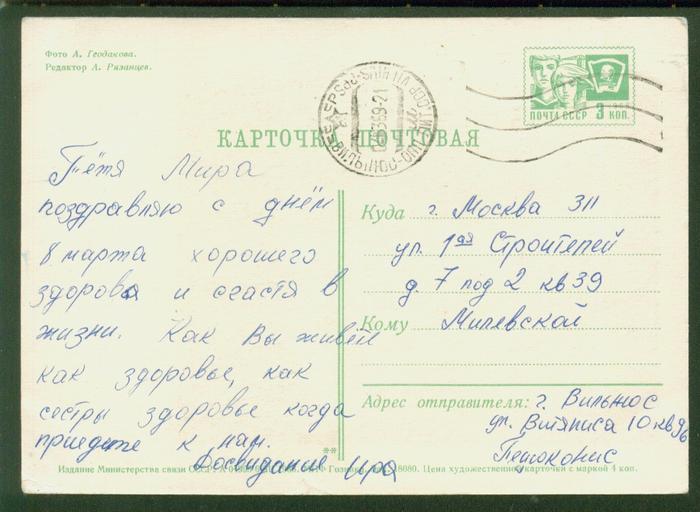 Фото А. Геодакова.
Редактор А. Рязанцев.
ПОЧТА СССР 3 КОП.
КАРТОЧКА ПОЧТОВАЯ
Тётя Мира
поздравляю с днём
8 марта хорошего
здоровья и счастя в
жизни. Как Вы живёте
как здоровье, как
сестры здоровье когда
приедите к нам.
Досвидание Ира
Куда г. Москва 311
ул. 1ая Строителей
д. 7 под 2 кв 39
Кому Милевской
Адрес отправителя: г. Вильнюс
ул. Витяниса 10 кв 96
Петоконис
**
Издание Министерства связи СССР. 18080. Цена художественной карточки с маркой 4 коп.